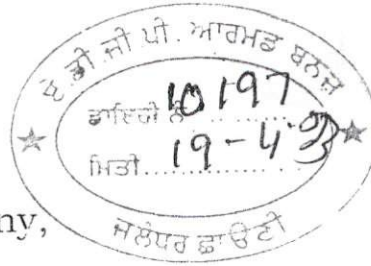 ਏ.ਡੀ.ਜੀ.ਪੀ. ਆਰਮਡ ਬਨਜ਼
ਡਾਇਰੀ ਨੰ 10197
ਮਿਤੀ 19-4-
ਜਲੰਧਰ ਛਾਉਣੀ
ny,